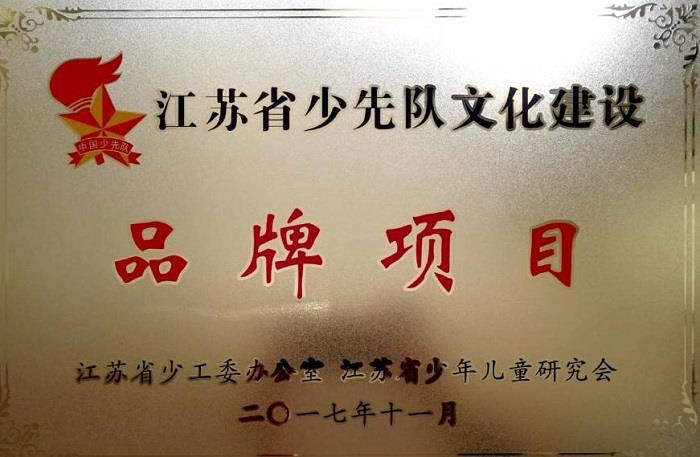 江苏省少先队文化建设
中国少先队
品牌项目
江苏省少工委办公室 江苏省少年儿童研究会
二〇一七年十一月